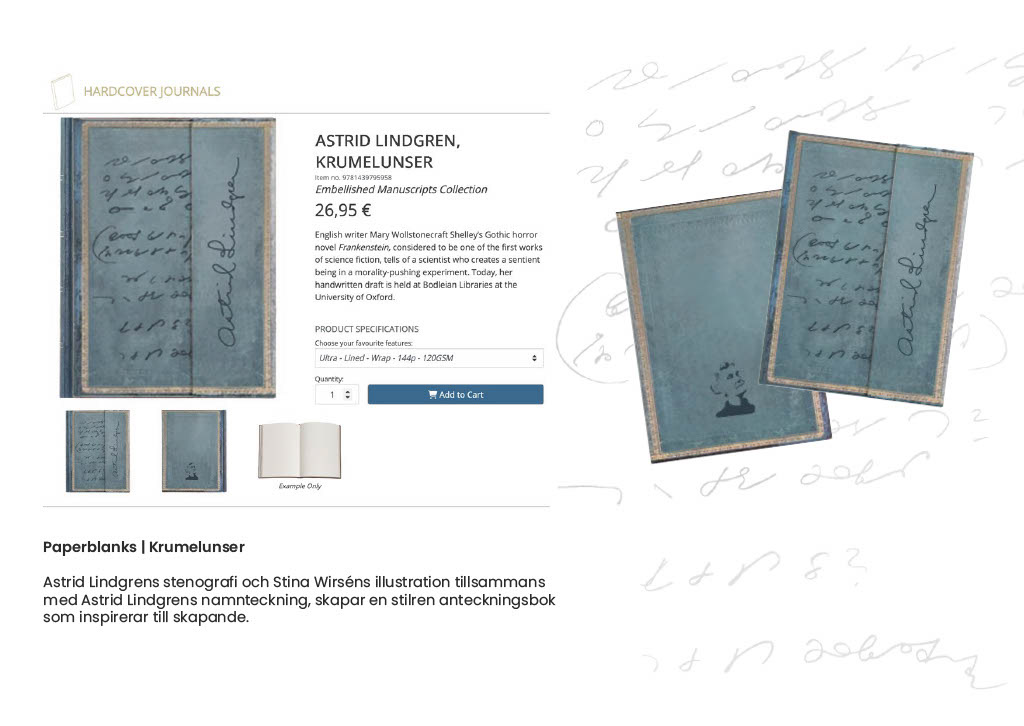 HARDCOVER JOURNALS
ASTRID LINDGREN,
KRUMELUNSER
Item no. 9781439795958
Embellished Manuscripts Collection
26,95 €
English writer Mary Wollstonecraft Shelley's Gothic horror
novel Frankenstein, considered to be one of the first works
of science fiction, tells of a scientist who creates a sentient
being in a morality-pushing experiment. Today, her
handwritten draft is held at Bodleian Libraries at the
University of Oxford.
PRODUCT SPECIFICATIONS
Choose your favourite features:
Ultra - Lined - Wrap - 144p - 120GSM
Quantity:
1
Add to Cart
Astrid Lindgren
Astrid Lindgren
Astrid Lindgren
Example Only
Paperblanks | Krumelunser
Astrid Lindgrens stenografi och Stina Wirséns illustration tillsammans
med Astrid Lindgrens namnteckning, skapar en stilren anteckningsbok
som inspirerar till skapande.